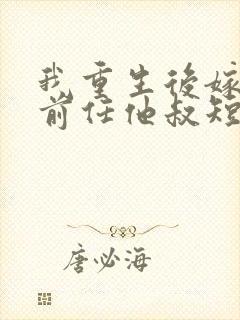 我重生後嫁
前任他叔短
唐必海